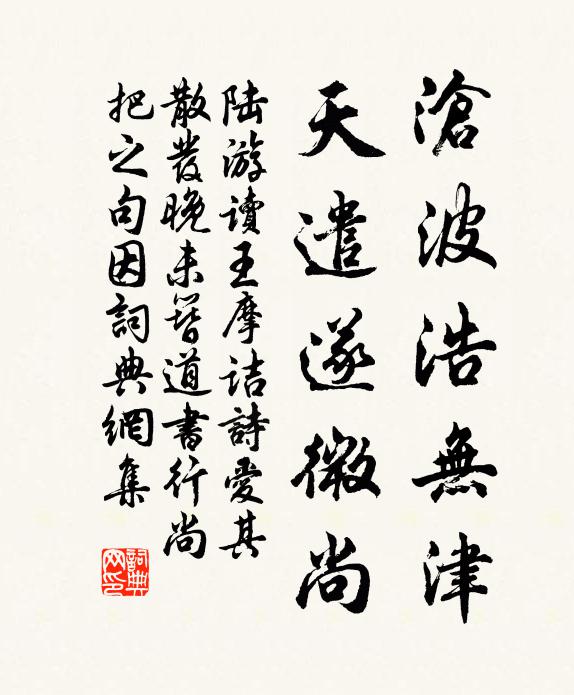 滄波浩無津
天遣遂微尚
陸游讀王摩詰詩愛其
散發晚未簪道書行尚
把之句因詞典網集
詞典
网印